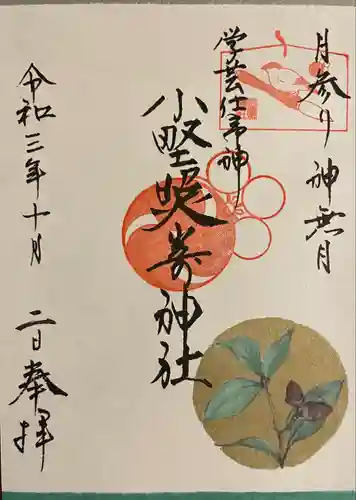 月参り 神無月
学芸仕弟神
小野照崎神社
令和三年十月
二日奉拝